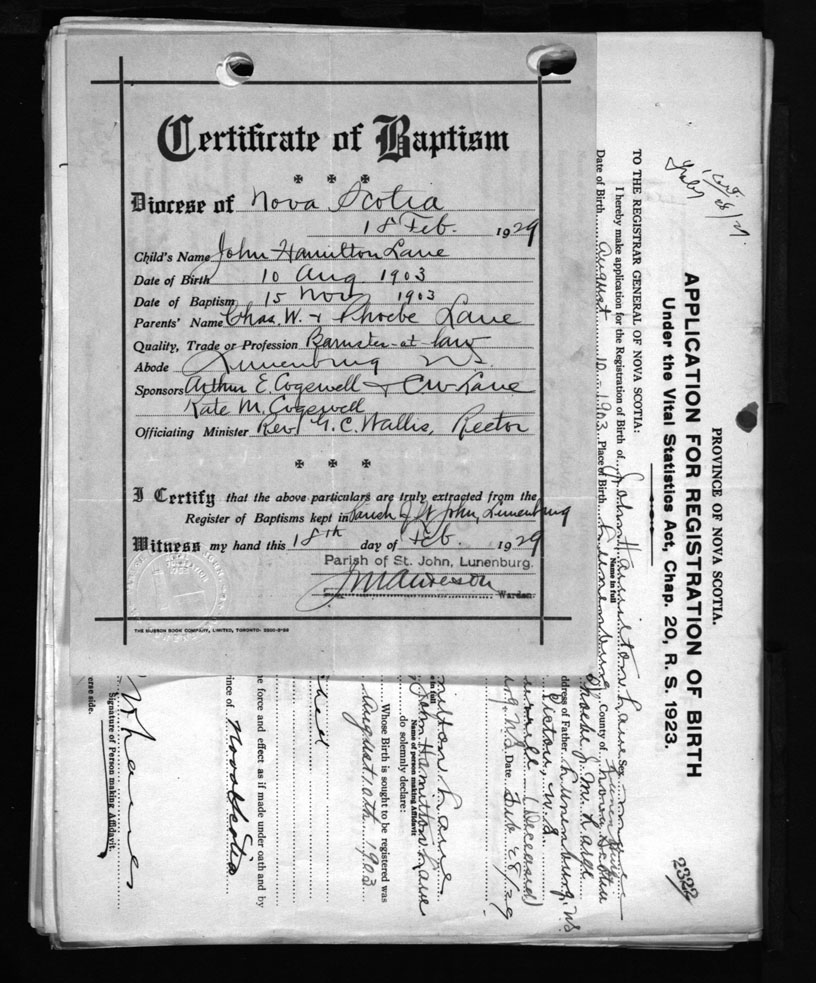 Certificate of Baptism
Diocese of Nova Scotia
18 Feb. 1929
Child's Name John Hamilton Lane
Date of Birth 10 Aug 1903
Date of Baptism 15 Nov 1903
Parents' Name Chas. W. + Phoebe Lane
Quality, Trade or Profession Barrister-at-law
Abode Lunenburg NS.
Sponsors Arthur E. Cogswell + CW Lane
Kate M. Cogswell
Officiating Minister Rev G. C. Wallis, Rector
I Certify that the above particulars are truly extracted from the
Register of Baptisms kept in Parish of St John, Lunenburg
Witness my hand this 18th day of Feb. 1929
Parish of St. John, Lunenburg.
Warden.
THE MUSSON BOOK COMPANY, LIMITED, TORONTO-
PROVINCE OF NOVA SCOTIA.
APPLICATION FOR REGISTRATION OF BIRTH
Under the Vital Statistics Act, Chap. 20, R. S. 1923.
2322
1 Cert.
TO THE REGISTRAR GENERAL OF NOVA SCOTIA:
I hereby make application for the Registration of Birth of John Hamilton Lane Sex
Name in full
Date of Birth August 10 1903 Place of Birth Lunenburg County of Lunenburg
Nova Scotia
Phoebe J. M. Lane
ddress of Father Lunenburg, NS.
Pictou, N.S.
(Deceased)
NS Date Feb 28/29
milton Lane
e in full
John Hamilton Lane
Name of person making Affidavit
do solemnly declare:
Whose Birth is sought to be registered was
August 10th 1903
he force and effect as if made under oath and by
rince of Nova Scotia
Signature of Person making Affidavit.
erse side.